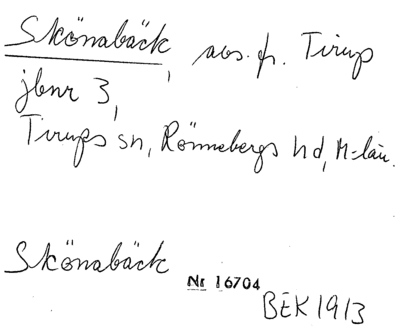 Skönabäck, avs. fr. Tirup
jbnr 3,
Tirups sn, Rönnebergs hd, M-län.
Skönabäck
Nr 16704
BEK 1913